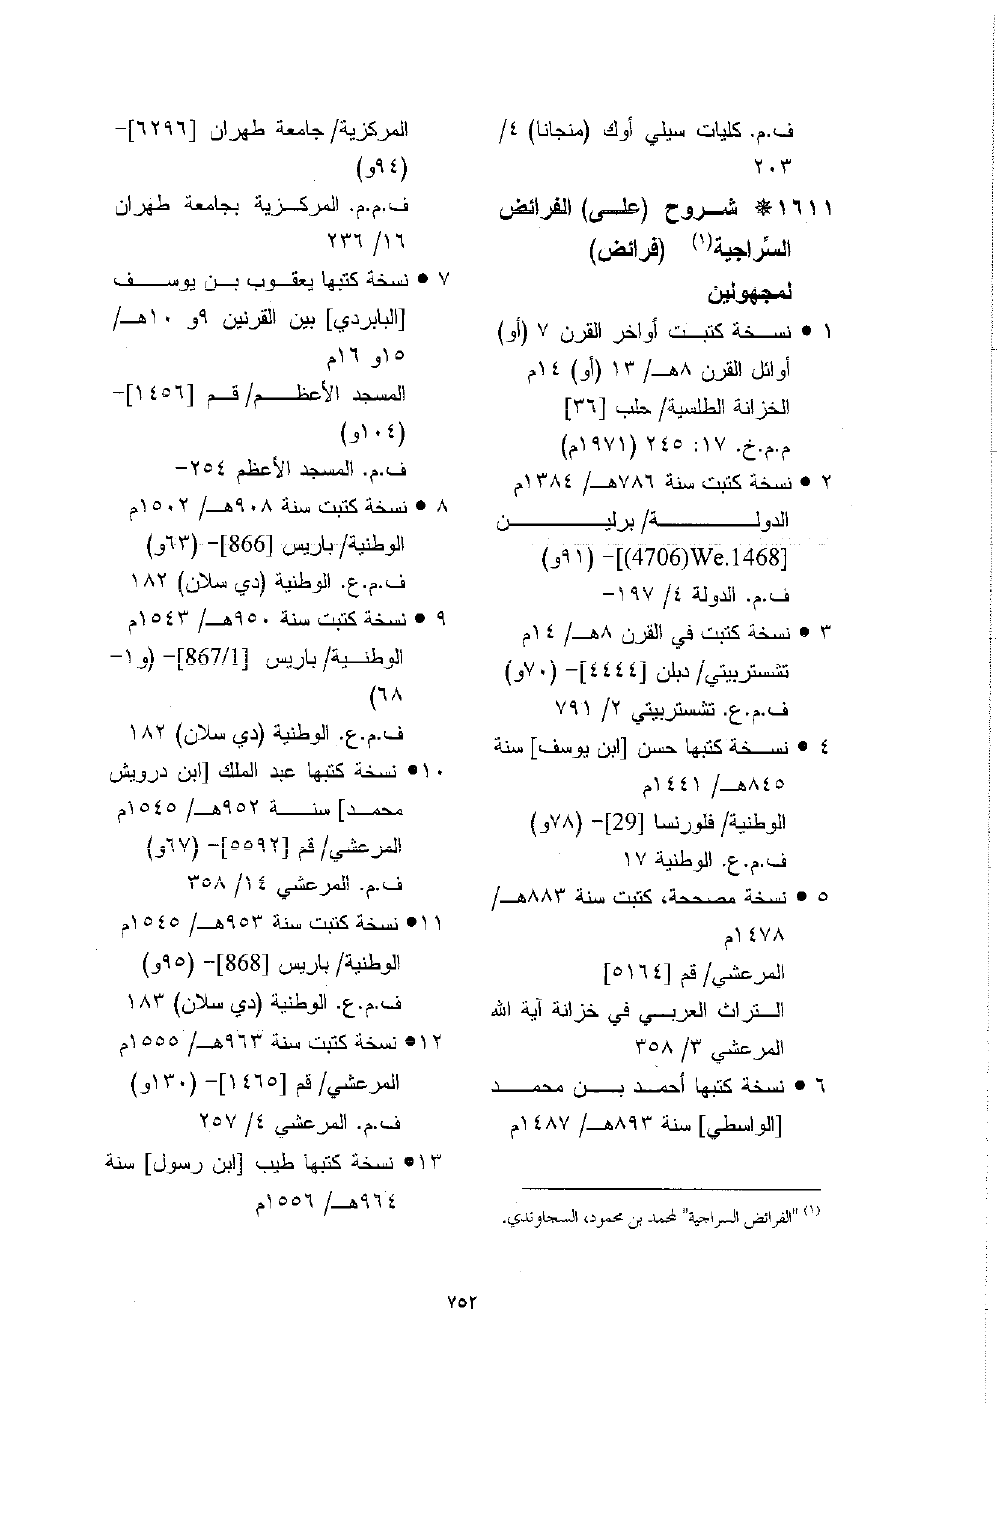 ف.م. كليات سيلي أوك (منجانا) ٤/
٢٠٣
١٦١١* شروح (على) الفرائض
السِّراجية(١) (فرائض)
لمجهولين
١ • نسخة كتبت أواخر القرن ٧ (أو)
أوائل القرن ٨هـ/ ١٣ (أو) ١٤م
الخزانة الطلسية/ حلب [٣٦]
م.م.خ. ١٧: ٢٤٥ (١٩٧١م)
٢ • نسخة كتبت سنة ٧٨٦هـ/ ١٣٨٤م
الدولة/ برلين
[(4706)We.1468]– (٩١و)
ف.م. الدولة ٤/ ١٩٧–
٣ • نسخة كتبت في القرن ٨هـ/ ١٤م
تشستربيتي/ دبلن [٤٤٤٤]– (٧٠و)
ف.م.ع. تشستربيتي ٢/ ٧٩١
٤ • نسخة كتبها حسن [ابن يوسف] سنة
٨٤٥هـ/ ١٤٤١م
الوطنية/ فلورنسا [29]– (٧٨و)
ف.م.ع. الوطنية ١٧
٥ • نسخة مصححة، كتبت سنة ٨٨٣هـ/
١٤٧٨م
المرعشي/ قم [٥١٦٤]
التراث العربي في خزانة آية الله
المرعشي ٣/ ٣٥٨
٦ • نسخة كتبها أحمد بن محمد
[الواسطي] سنة ٨٩٣هـ/ ١٤٨٧م
(١) "الفرائض السراجية" لمحمد بن محمود، السجاوندي.
المركزية/ جامعة طهران [٦٢٩٦]–
(٩٤و)
ف.م.م. المركزية بجامعة طهران
١٦/ ٢٣٦
٧ • نسخة كتبها يعقوب بن يوسف
[البابردي] بين القرنين ٩و ١٠هـ/
١٥و ١٦م
المسجد الأعظم/ قم [١٤٥٦]–
(١٠٤و)
ف.م. المسجد الأعظم ٢٥٤–
٨ • نسخة كتبت سنة ٩٠٨هـ/ ١٥٠٢م
الوطنية/ باريس [866]– (٦٣و)
ف.م.ع. الوطنية (دي سلان) ١٨٢
٩ • نسخة كتبت سنة ٩٥٠هـ/ ١٥٤٣م
الوطنية/ باريس [867/1]– (و١–
٦٨)
ف.م.ع. الوطنية (دي سلان) ١٨٢
١٠• نسخة كتبها عبد الملك [ابن درويش
محمد] سنة ٩٥٢هـ/ ١٥٤٥م
المرعشي/ قم [٥٥٩٢]– (٦٧و)
ف.م. المرعشي ١٤/ ٣٥٨
١١• نسخة كتبت سنة ٩٥٣هـ/ ١٥٤٥م
الوطنية/ باريس [868]– (٩٥و)
ف.م.ع. الوطنية (دي سلان) ١٨٣
١٢• نسخة كتبت سنة ٩٦٣هـ/ ١٥٥٥م
المرعشي/ قم [١٤٦٥]– (١٣٠و)
ف.م. المرعشي ٤/ ٢٥٧
١٣• نسخة كتبها طيب [ابن رسول] سنة
٩٦٤هـ/ ١٥٥٦م
٧٥٢